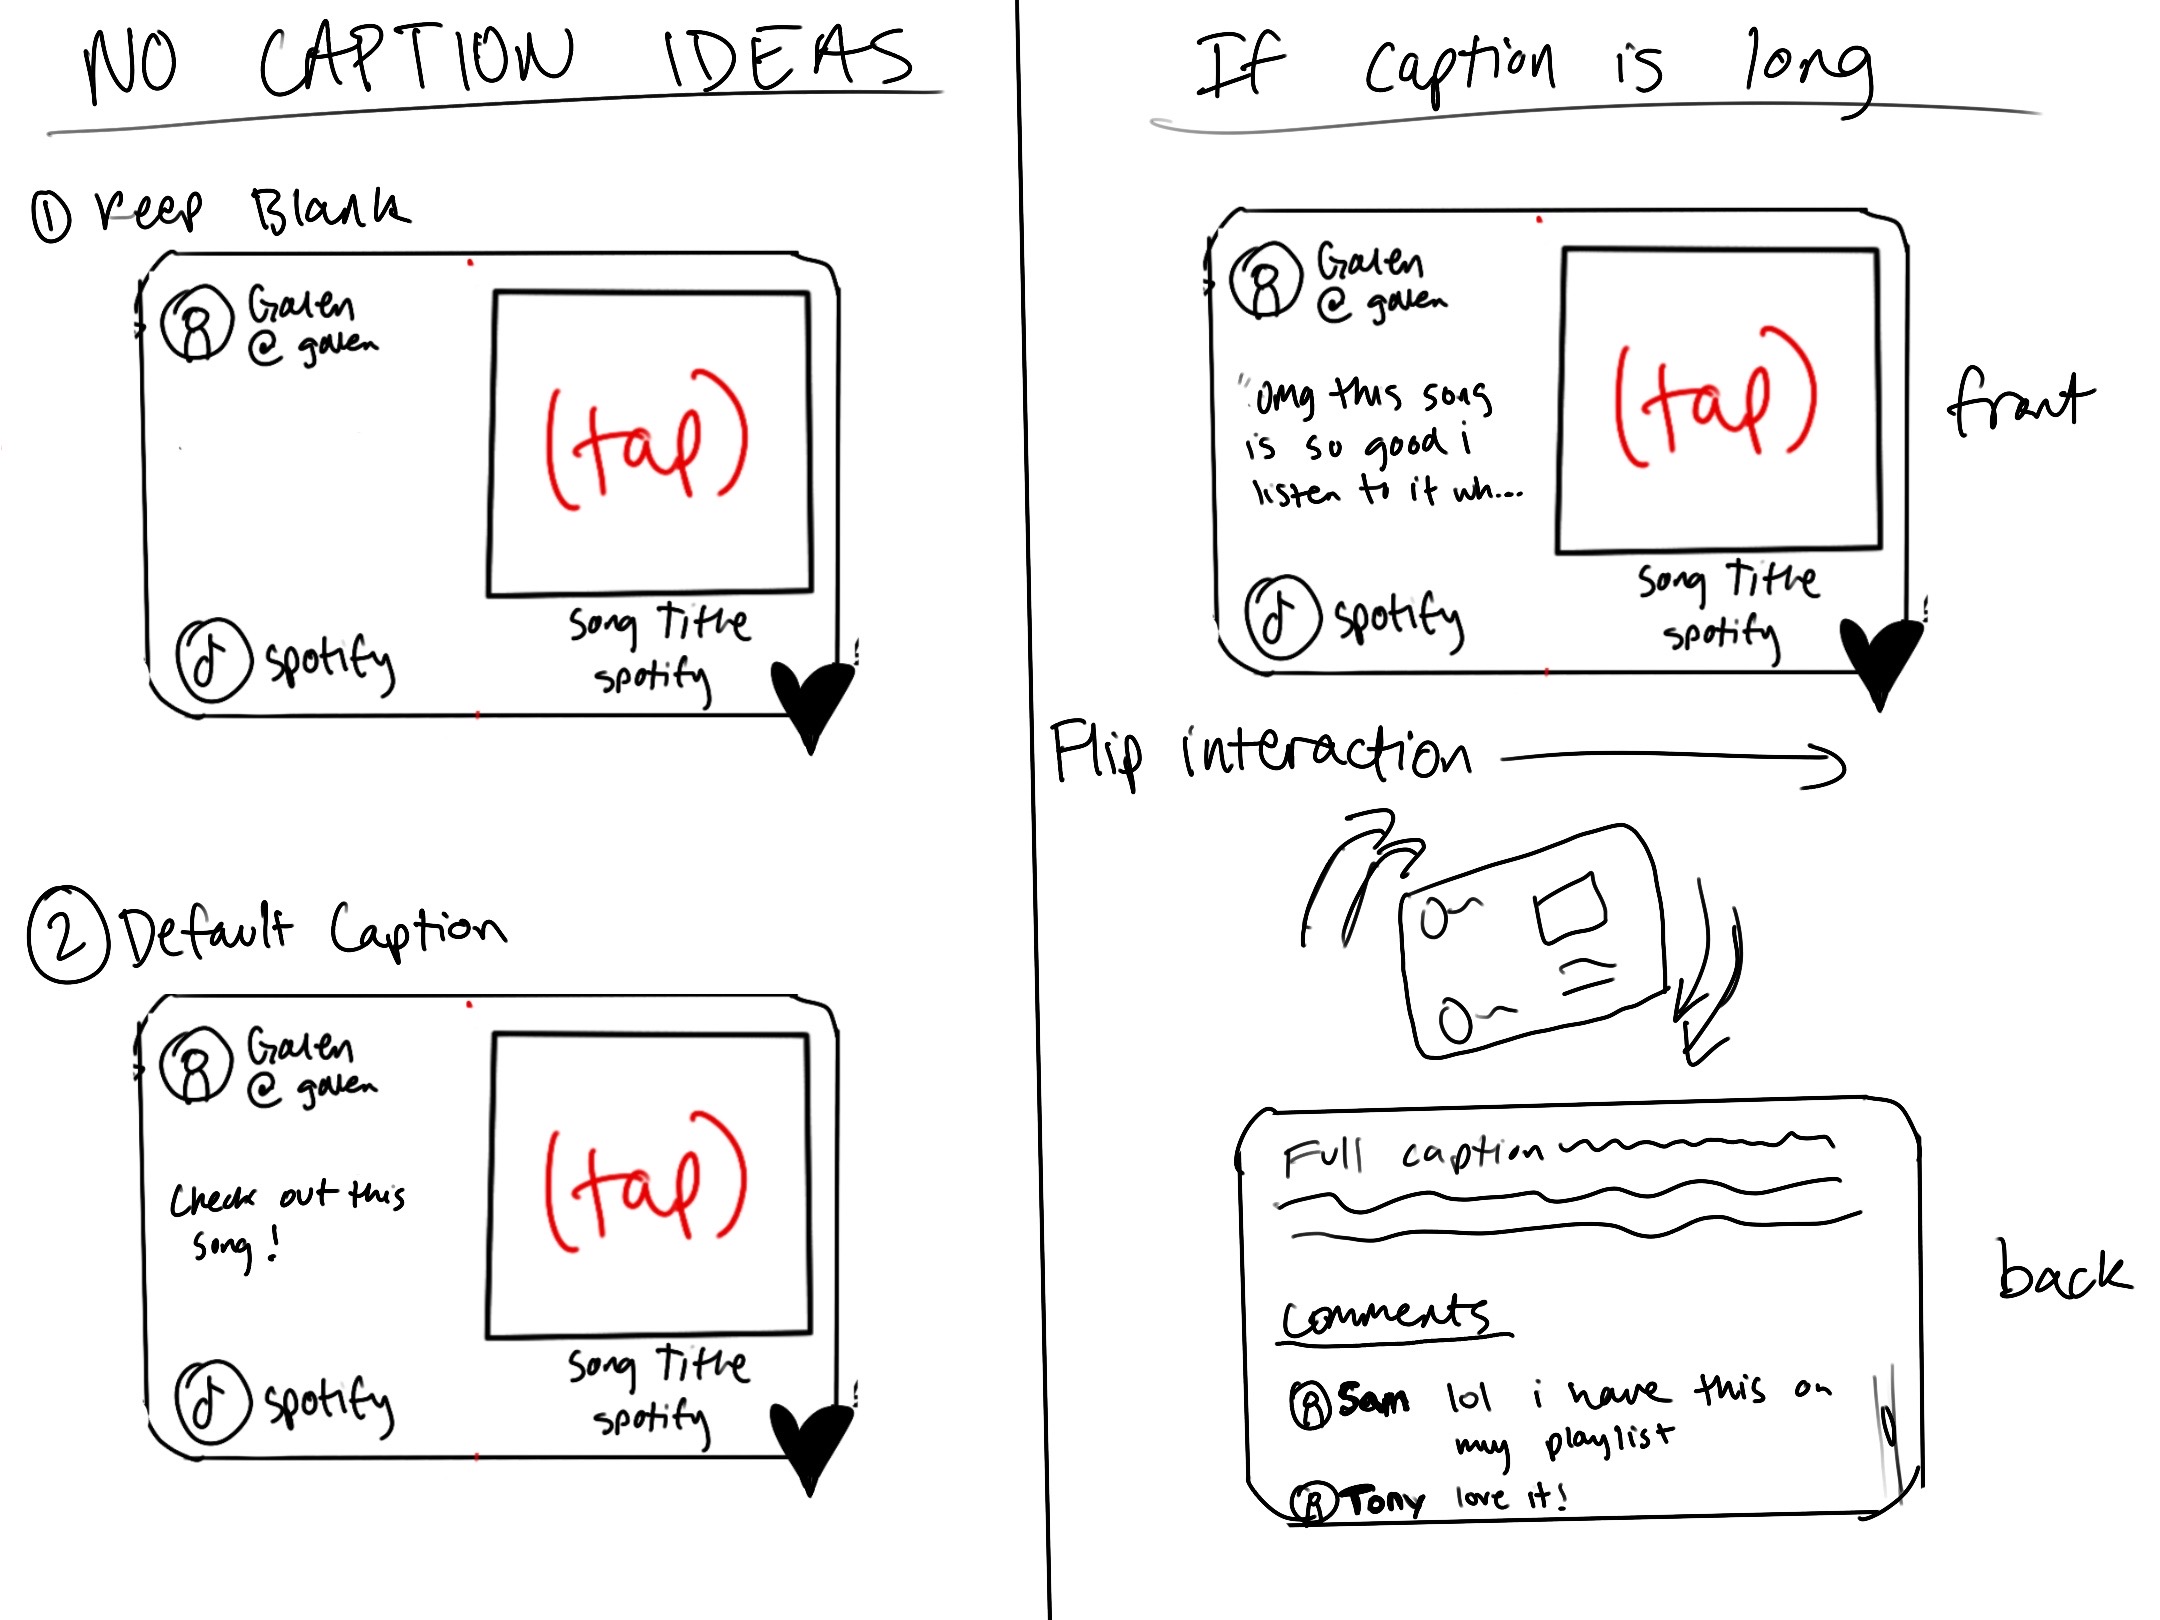 NO CAPTION IDEAS
① Keep Blank
Galen
@ galen
(tap)
Song Title
spotify
spotify
② Default Caption
Galen
@ galen
Check out this
song!
(tap)
Song Title
spotify
spotify
If caption is long
Galen
@ galen
"omg this song
is so good i
listen to it wh...
(tap)
Song Title
spotify
spotify
front
Flip interaction
Full caption
Comments
Sam lol i have this on
my playlist
Tony love it!
back